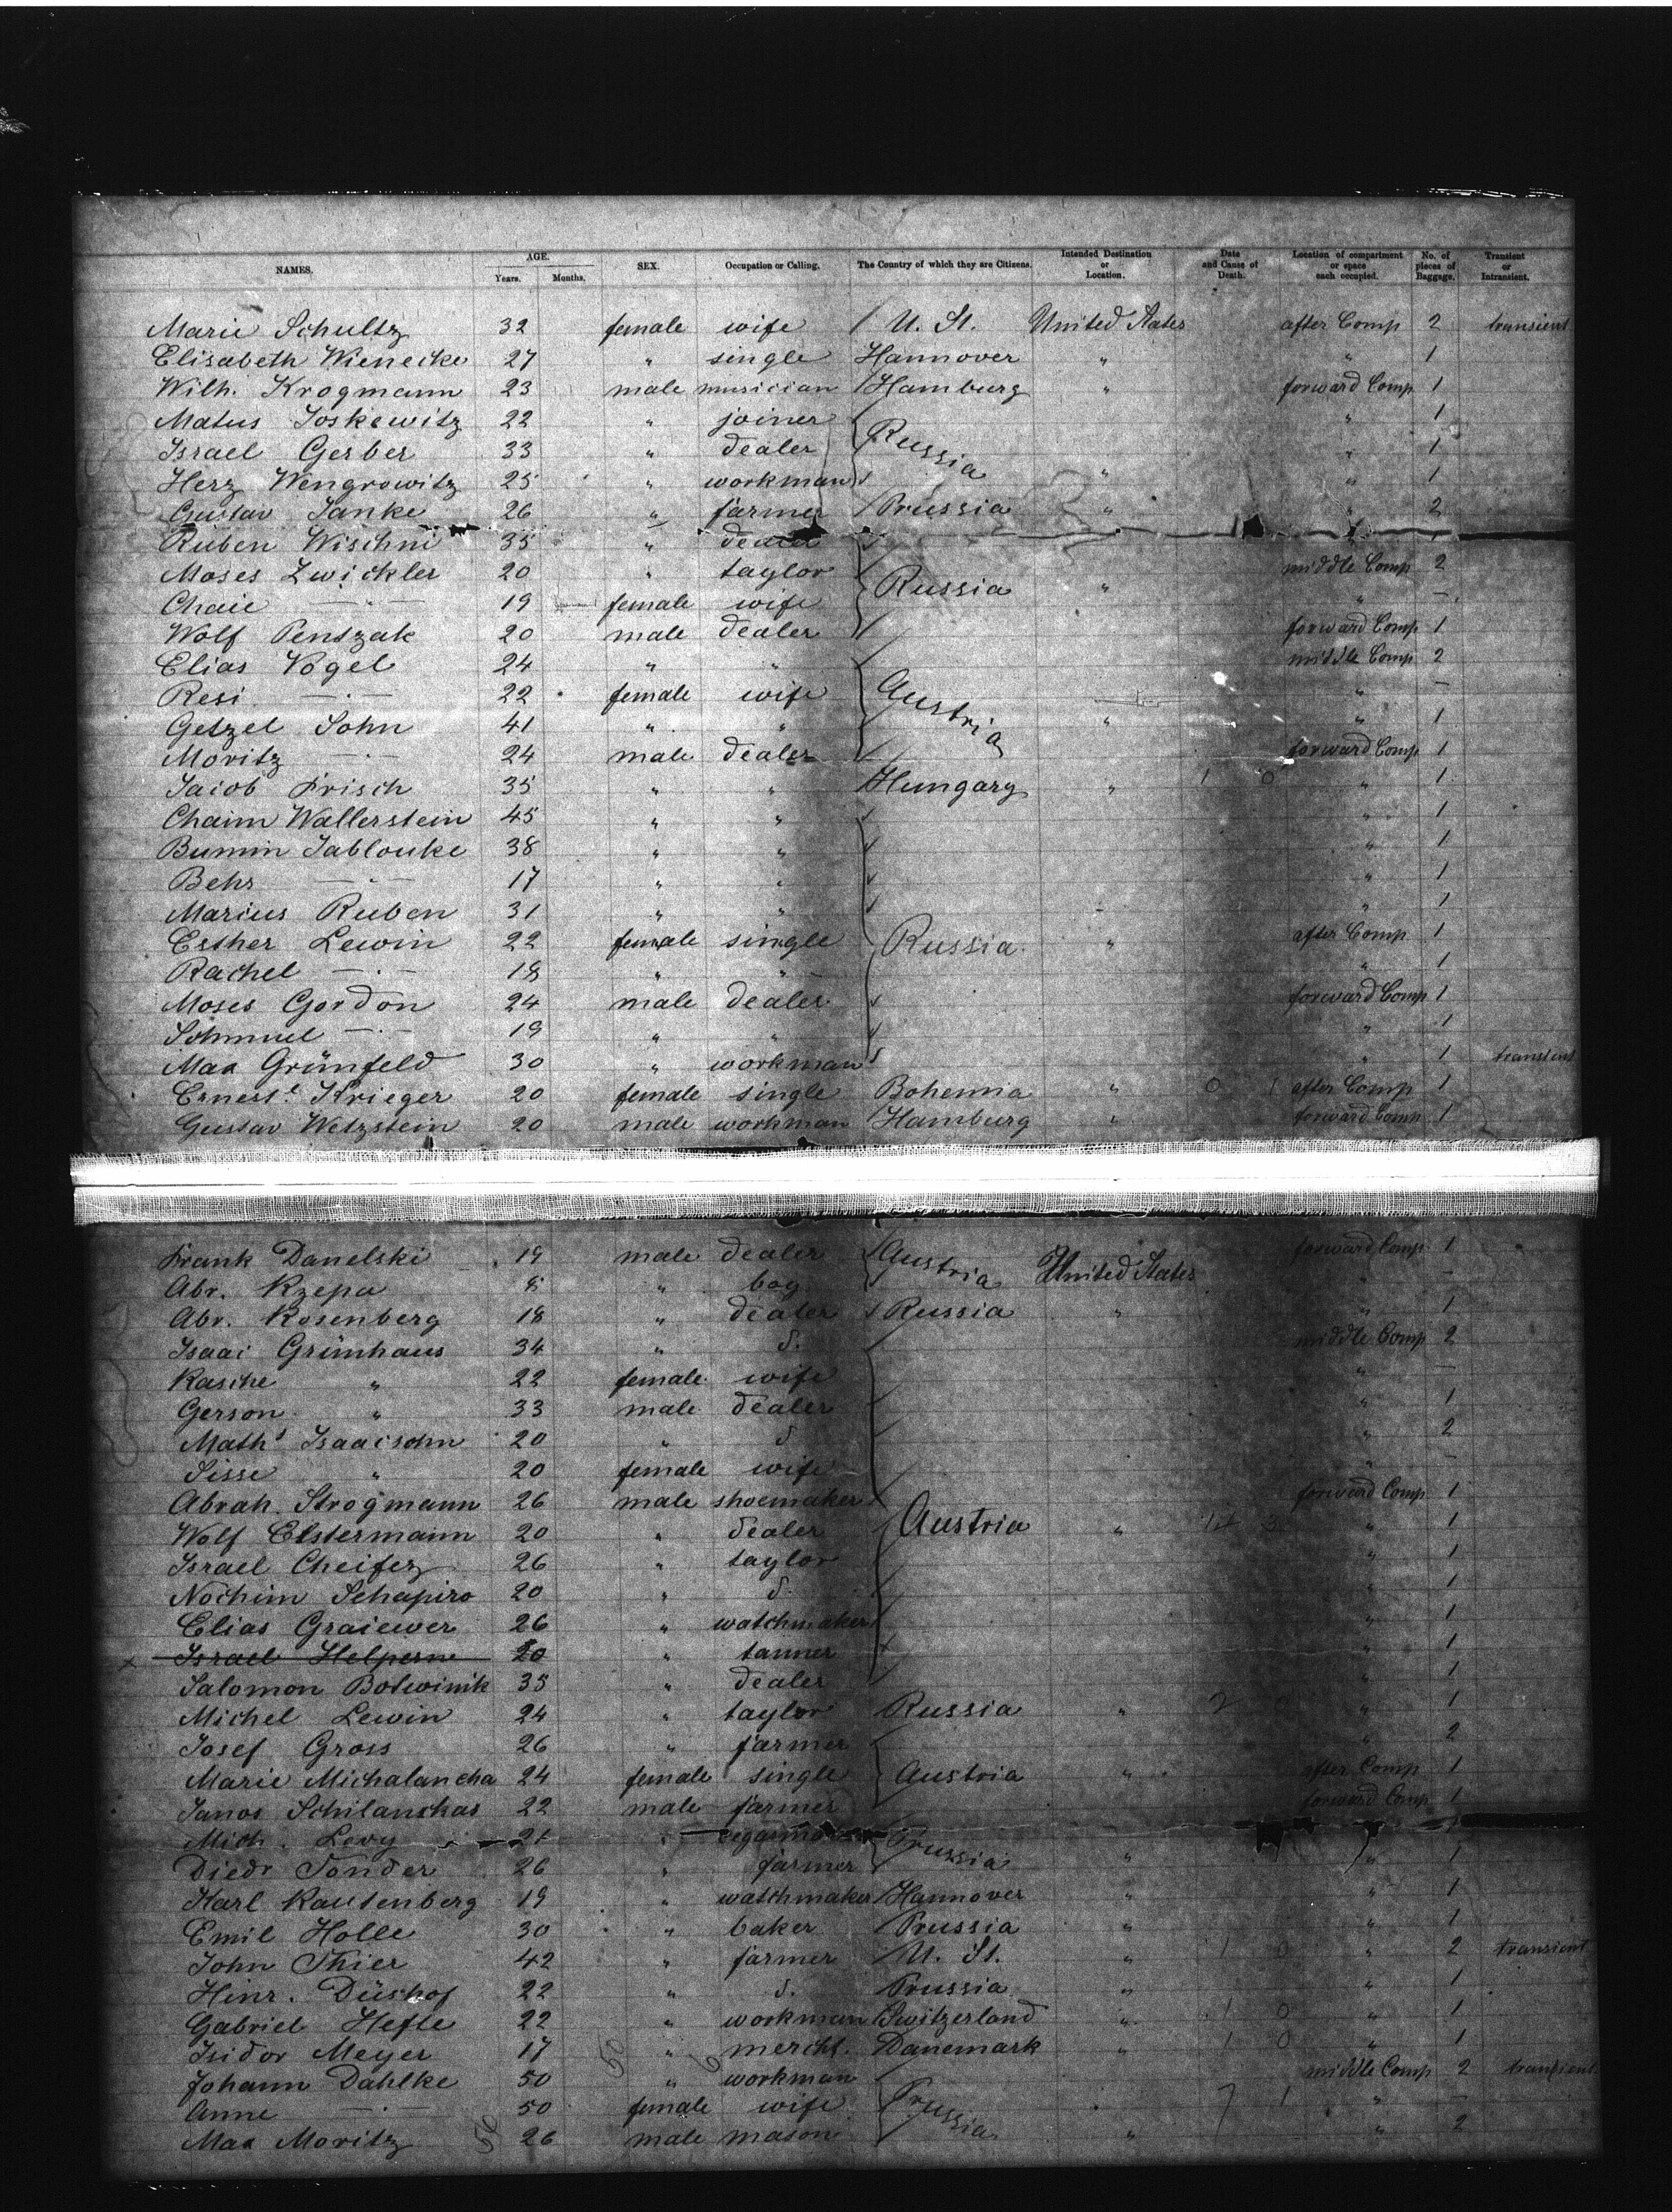 NAMES. AGE. Years. Months. SEX. Occupation or Calling. The Country of which they are Citizens. Intended Destination or Location. Date and Cause of Death. Location of compartment or space each occupied. No. of pieces of Baggage. Transient or Intransient.
Marie Schultz 32 female wife U. St. United States after Comp 2 transient
Elisabeth Wienecke 27 " single Hannover " " 1
Wilh. Krogmann 23 male musician Hamburg " forward Comp 1
Matus Joskewitz 22 " joiner " 1
Israel Gerber 33 " dealer Russia " 1
Herz Wengrowitz 25 " workman " " 1
Gustav Janke 26 " farmer Prussia " " 2
Ruben Wischni 35 " dealer
Moses Zwickler 20 " taylor Russia " middle Comp 2
Chaie —"— 19 female wife " —
Wolf Penszak 20 male dealer forward Comp 1
Elias Vogel 24 " " middle Comp 2
Resi —"— 22 female wife Austria " —
Getzel Sohn 41 " " " " 1
Moritz —"— 24 male dealer forward Comp 1
Jacob Frisch 35 " " Hungary " 1 0 " 1
Chaim Wallerstein 45 " " " 1
Bumin Jablouke 38 " " " 1
Behr —"— 17 " " " 1
Marius Ruben 31 " " " 1
Esther Lewin 22 female single Russia " after Comp 1
Rachel —"— 18 " " " 1
Moses Gordon 24 male dealer forward Comp 1
Schmuel —"— 19 " " " 1
Max Grünfeld 30 " workman " 1 transient
Ernest. Krieger 20 female single Bohemia " 0 1 after Comp 1
Gustav Wetzstein 20 male workman Hamburg " forward Comp 1
Frank Danelski 19 male dealer Austria United States forward Comp 1
Abr. Rzepa 8 " boy " —
Abr. Rosenberg 18 " dealer Russia " " 1
Isaac Grünhaus 34 " d. middle Comp 2
Rasche " 22 female wife " —
Gerson " 33 male dealer " 1
Maths Isaacsohn 20 " d " 2
Sisse " 20 female wife " —
Abrah. Strogmann 26 male shoemaker forward Comp 1
Wolf Elstermann 20 " dealer Austria " " 1
Israel Cheifez 26 " taylor " 1
Nochim Schapiro 20 " d. " 1
Elias Graiewer 26 " watchmaker " 1
x Israel Helpern 20 " tanner " 1
Salomon Botwinik 35 " dealer " 1
Michel Lewin 24 " taylor Russia " 2 " 1
Josef Gross 26 " farmer " 2
Marie Michalancha 24 female single Austria " after Comp 1
Janos Schilanskas 22 male farmer forward Comp 1
Mich. Levy 21 " Prussia
Diedr Tonder 26 " farmer " " 1
Karl Rautenberg 19 " watchmaker Hannover " " 1
Emil Holle 30 " baker Prussia " " 1
John Thier 42 " farmer U. St. " 1 0 " 2 transient
Hinr. Düshof 22 " d. Prussia " " 1
Gabriel Hefte 22 " workman Switzerland " 1 0 " 1
Isidor Meyer 17 " mercht. Danemark " 1 0 " 1
Johann Dahlke 50 " workman middle Comp 2 transient
Anne —"— 50 female wife Prussia 7 1 " —
Max Moritz 26 male mason " " 2